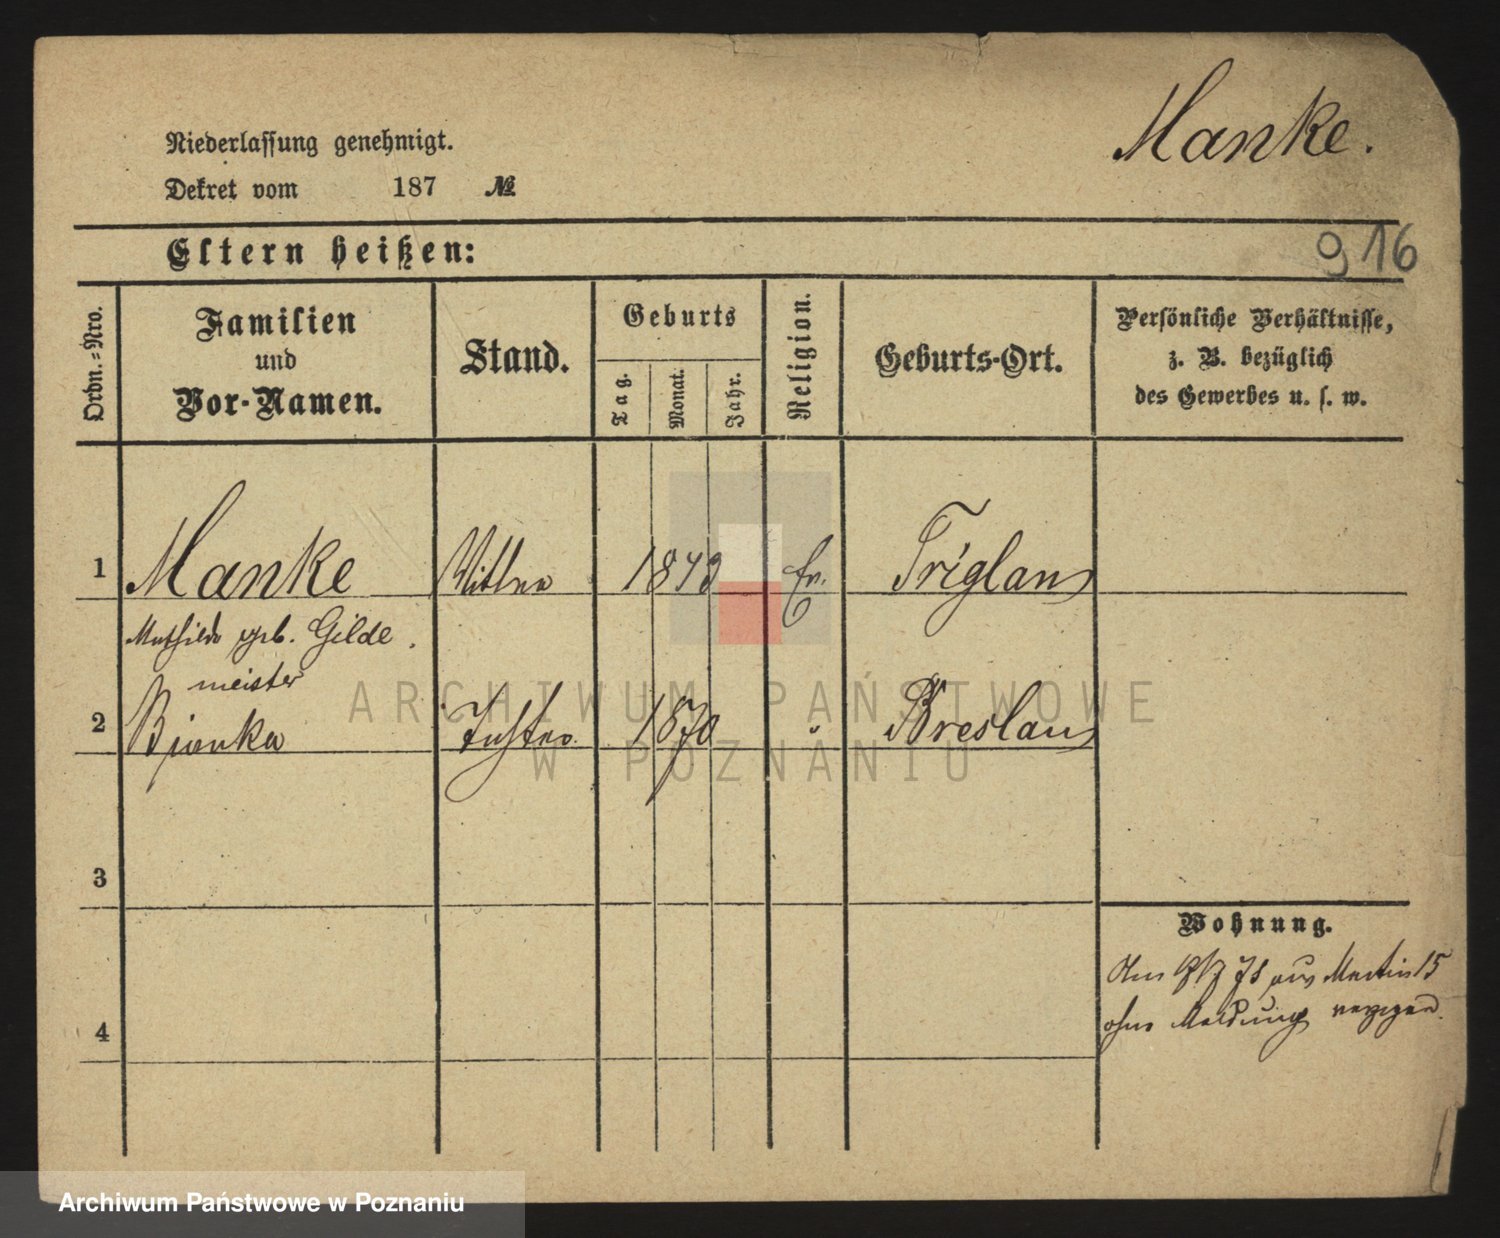 Manke.
Niederlassung genehmigt.
Dekret vom 187 №
Eltern heißen:
916
Ordn.-Nro.
Familien
und
Vor-Namen.
Stand.
Geburts
Tag.
Monat.
Jahr.
Religion.
Geburts-Ort.
Persönliche Verhältnisse,
z. B. bezüglich
des Gewerbes u. s. w.
1 Manke Ev. Triglau
Mathilde geb. Gilde
meister
2 Bianka Tochter 1870 Breslau
3
Wohnung.
Martin 15
ohne Meldung verzogen.
4
ARCHIWUM PAŃSTWOWE
W POZNANIU
Archiwum Państwowe w Poznaniu